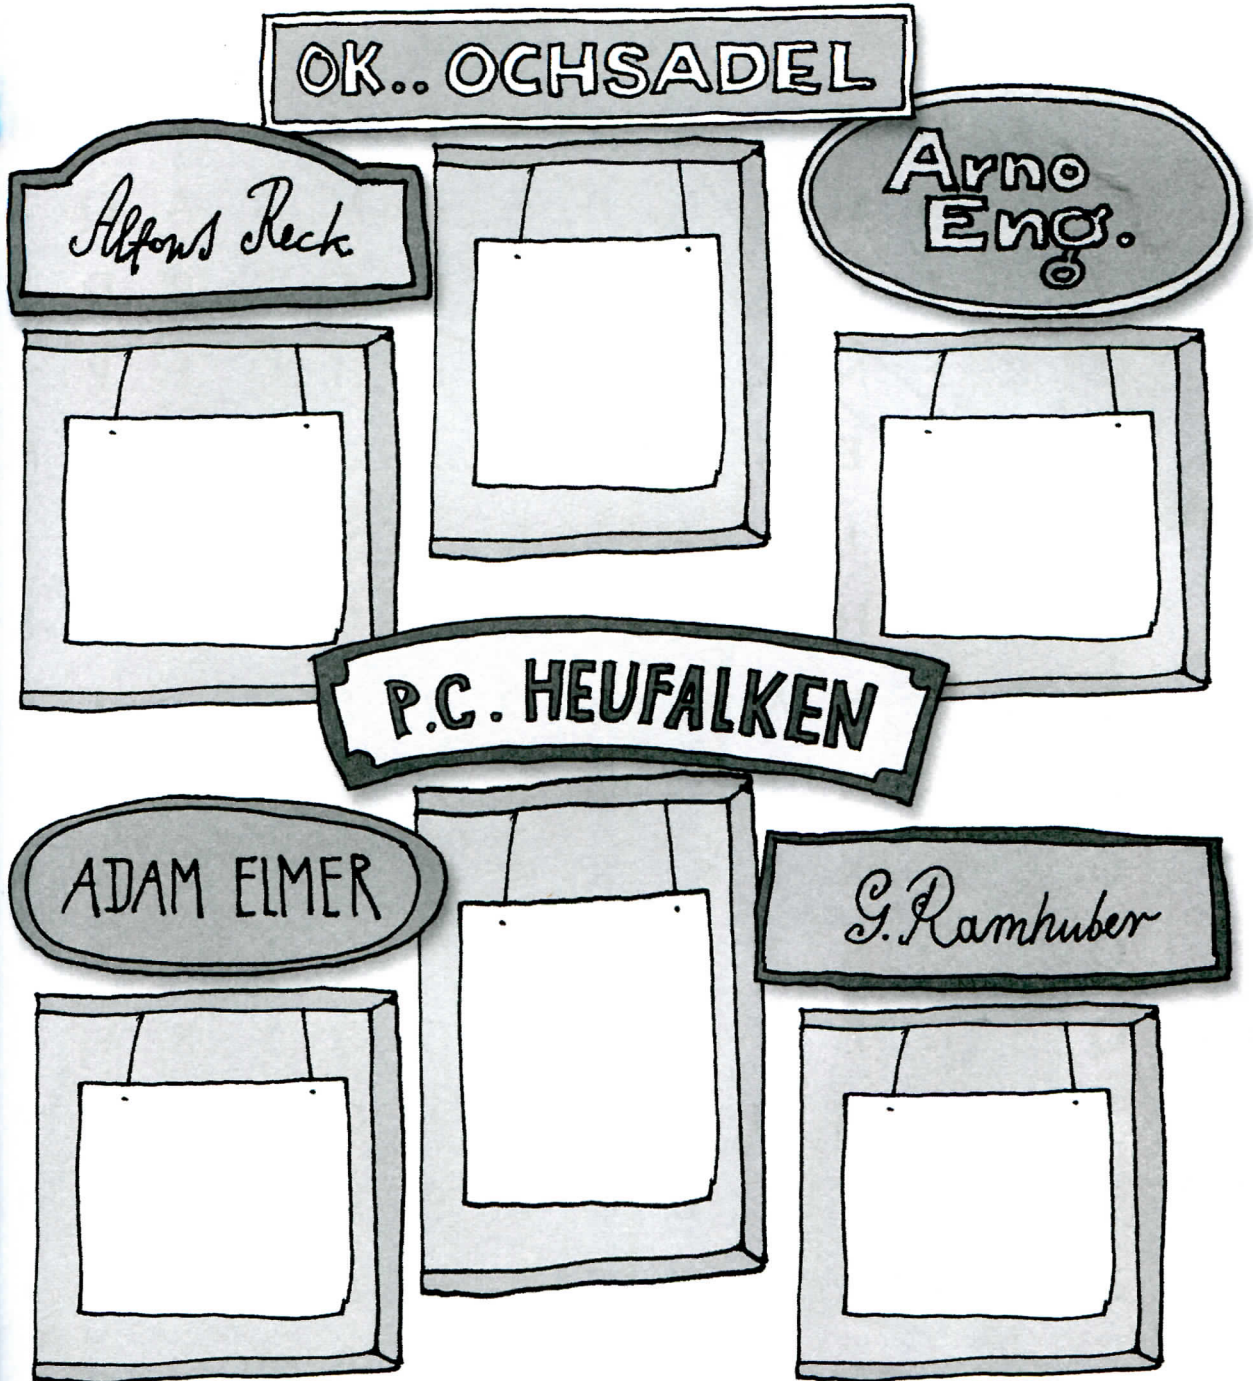 OK.. OCHSADEL
Alfons Reck
Arno
Eng.
P.C. HEUFALKEN
ADAM ELMER
G. Ramhuber